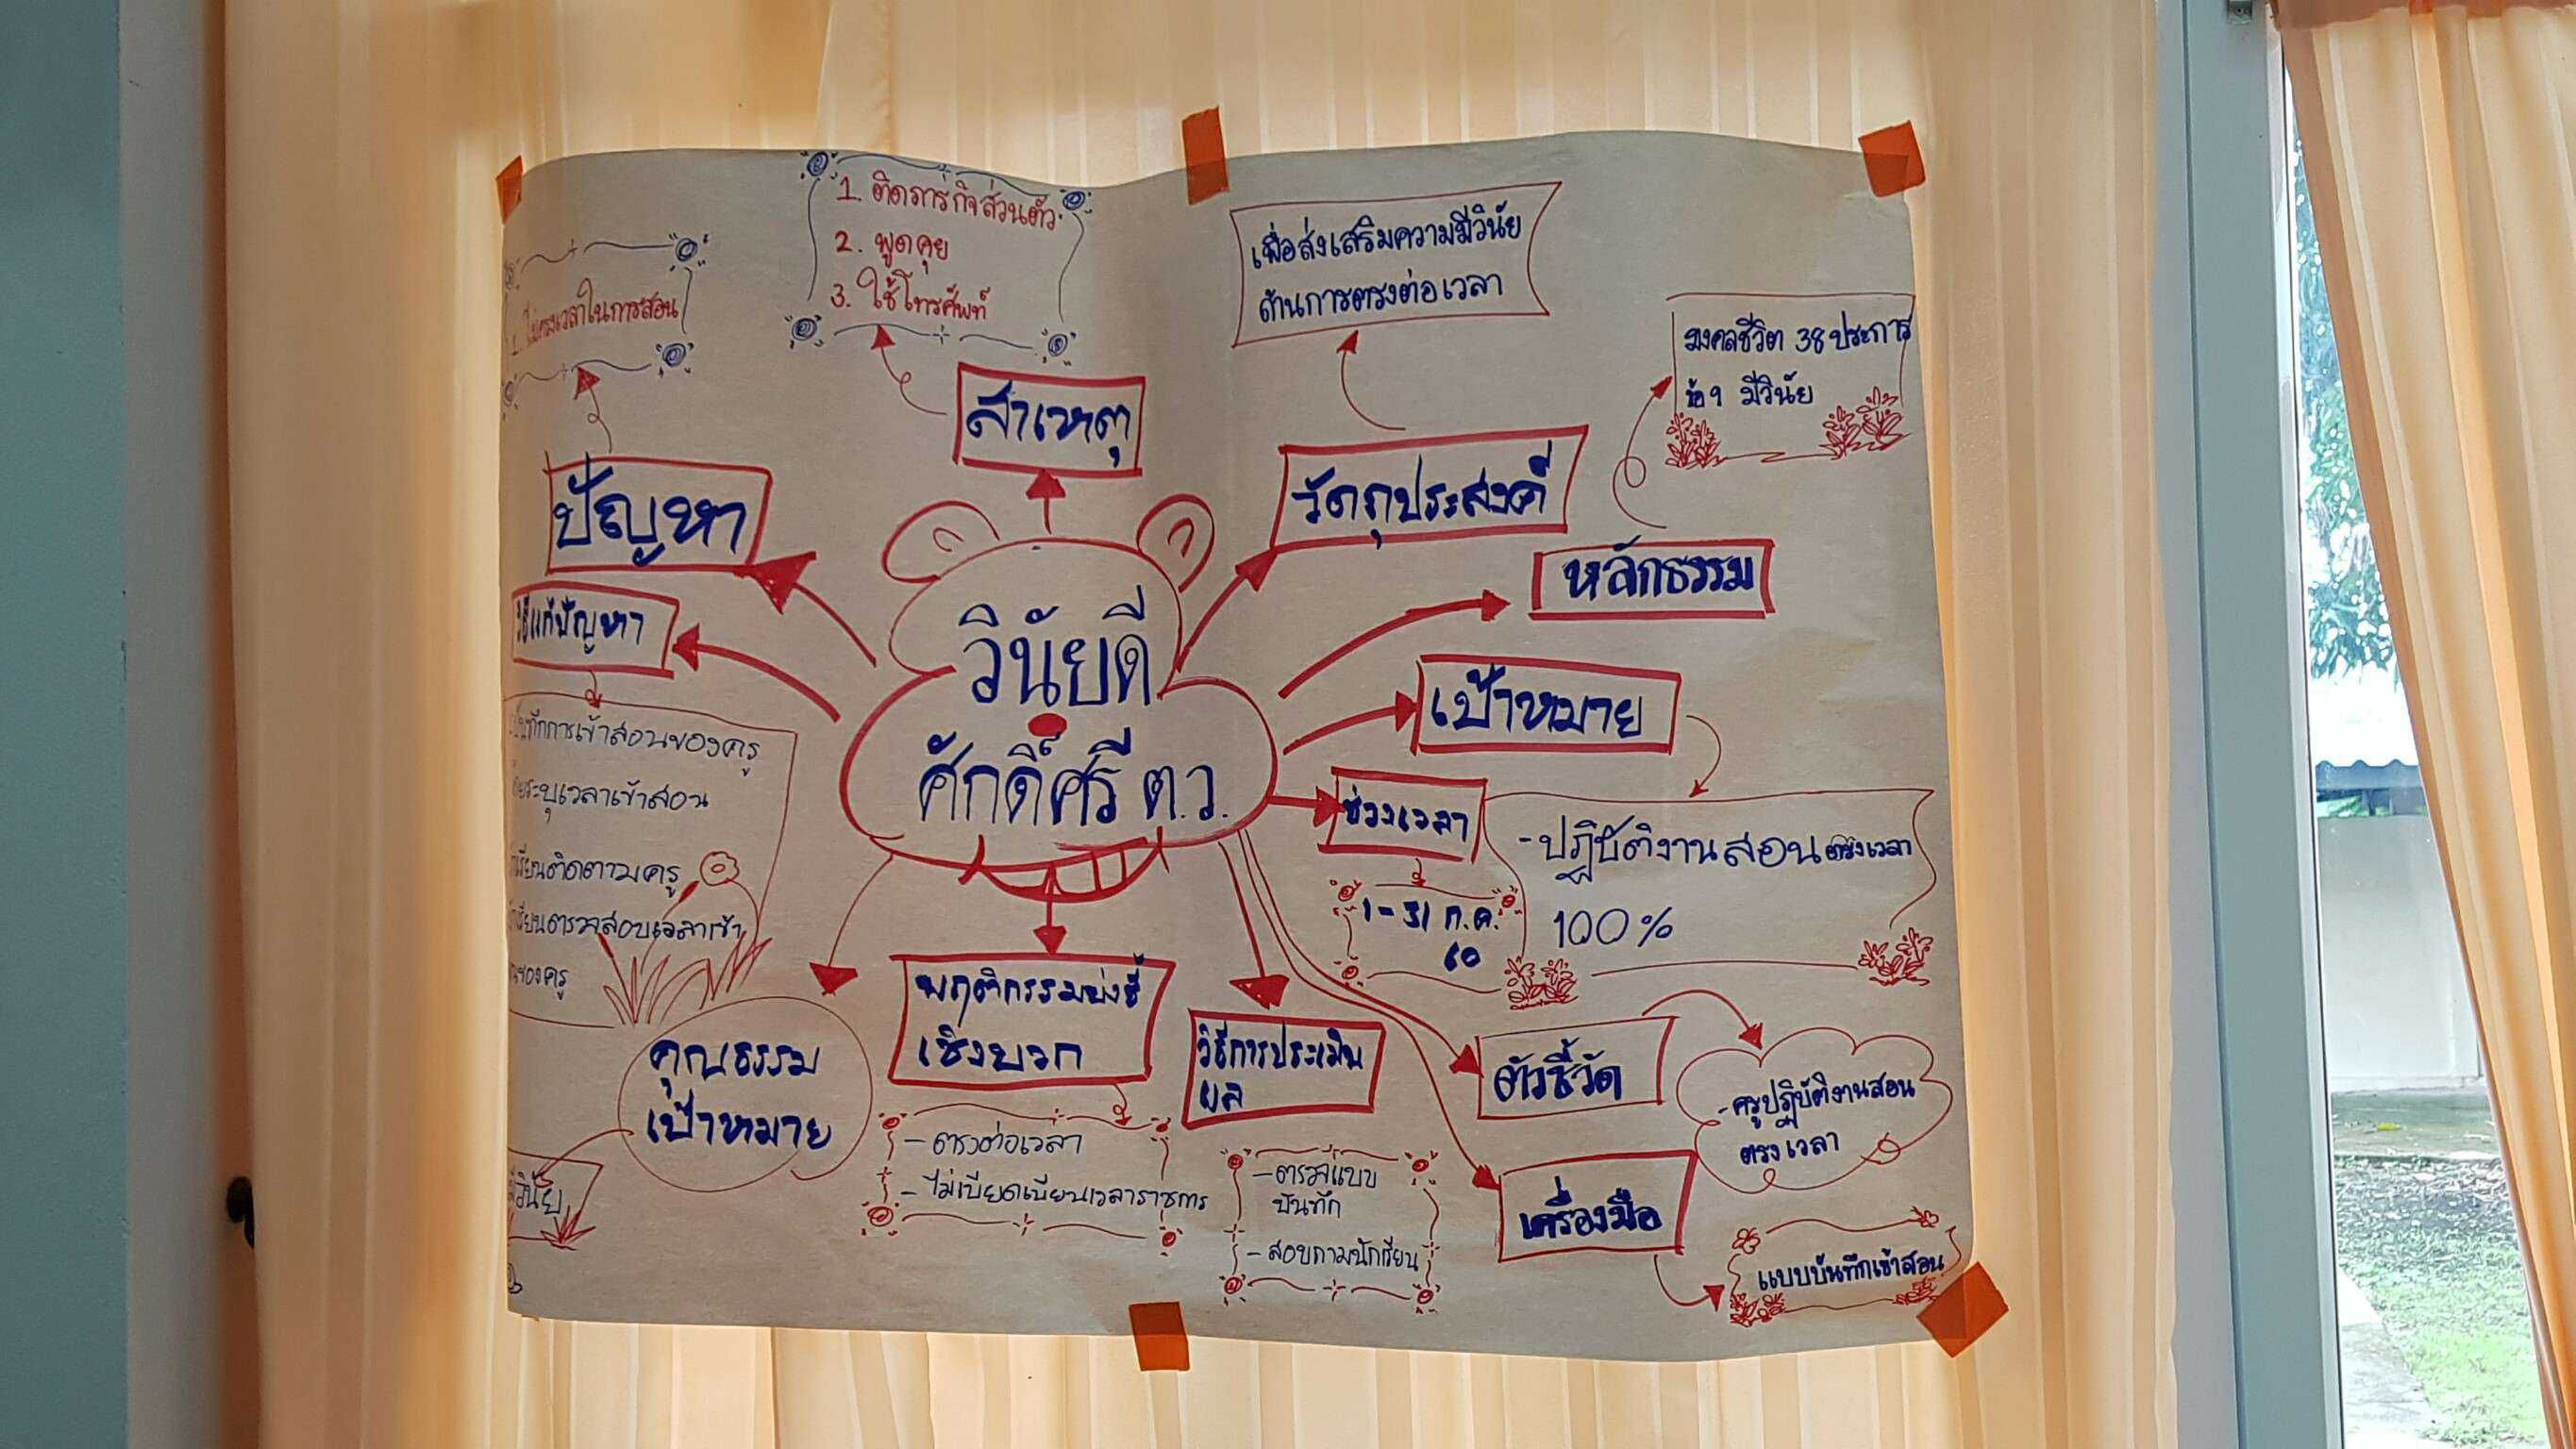 วินัยดี
ศักดิ์ศรี ต.ว.
ปัญหา
1. ไม่ตรงเวลาในการสอน
สาเหตุ
1. ติดภารกิจส่วนตัว
2. พูดคุย
3. ใช้โทรศัพท์
วัตถุประสงค์
เพื่อส่งเสริมความมีวินัย
ด้านการตรงต่อเวลา
หลักธรรม
มงคลชีวิต 38 ประการ
ข้อ 9 มีวินัย
เป้าหมาย
- ปฏิบัติงานสอนตรงเวลา
100 %
ช่วงเวลา
1 - 31 ก.ค.
60
ตัวชี้วัด
- ครูปฏิบัติงานสอน
ตรงเวลา
เครื่องมือ
แบบบันทึกเข้าสอน
วิธีการประเมิน
ผล
- ตรวจแบบ
บันทึก
- สอบถามนักเรียน
พฤติกรรมบ่งชี้
เชิงบวก
- ตรงต่อเวลา
- ไม่เบียดเบียนเวลาราชการ
คุณธรรม
เป้าหมาย
มีวินัย
วิธีแก้ปัญหา
บันทึกการเข้าสอนของครู
ระบุเวลาเข้าสอน
เรียนติดตามครู
เรียนตรวจสอบเวลาเข้า
ของครู